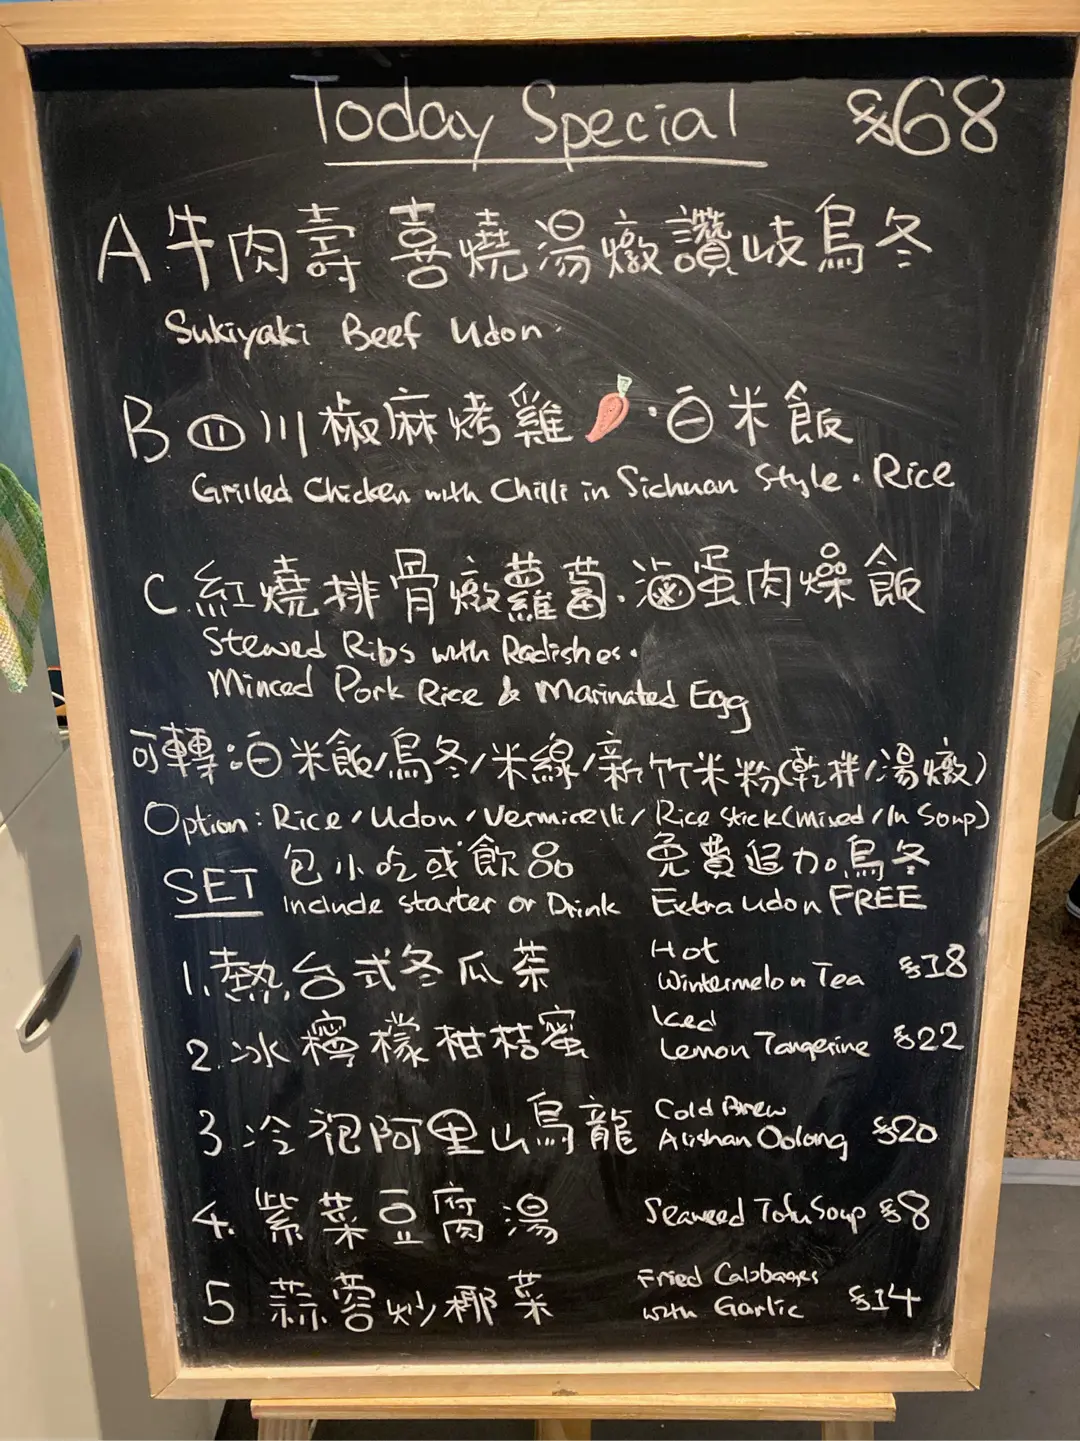 Today Special $68
A 牛肉壽喜燒湯燉讚岐烏冬
Sukiyaki Beef Udon.
B. 四川椒麻烤雞・白米飯
Grilled Chicken with Chilli in Sichuan Style・Rice
C. 紅燒排骨燉蘿蔔・滷蛋肉燥飯
Stewed Ribs with Radishes.
Minced Pork Rice & Marinated Egg
可轉:白米飯/烏冬/米線/新竹米粉(乾拌/湯燉)
Option: Rice/Udon/Vermicelli/Rice Stick(Mixed/In Soup)
SET 包小吃或飲品 免費追加烏冬
Include starter or Drink Extra udon FREE
1. 熱台式冬瓜茶 Hot Wintermelon Tea $18
2. 冰檸檬柑桔蜜 Iced Lemon Tangerine $22
3. 冷泡阿里山烏龍 Cold Brew Alishan Oolong $20
4. 紫菜豆腐湯 Seaweed Tofu Soup $8
5 蒜蓉炒椰菜 Fried Cabbages with Garlic $14